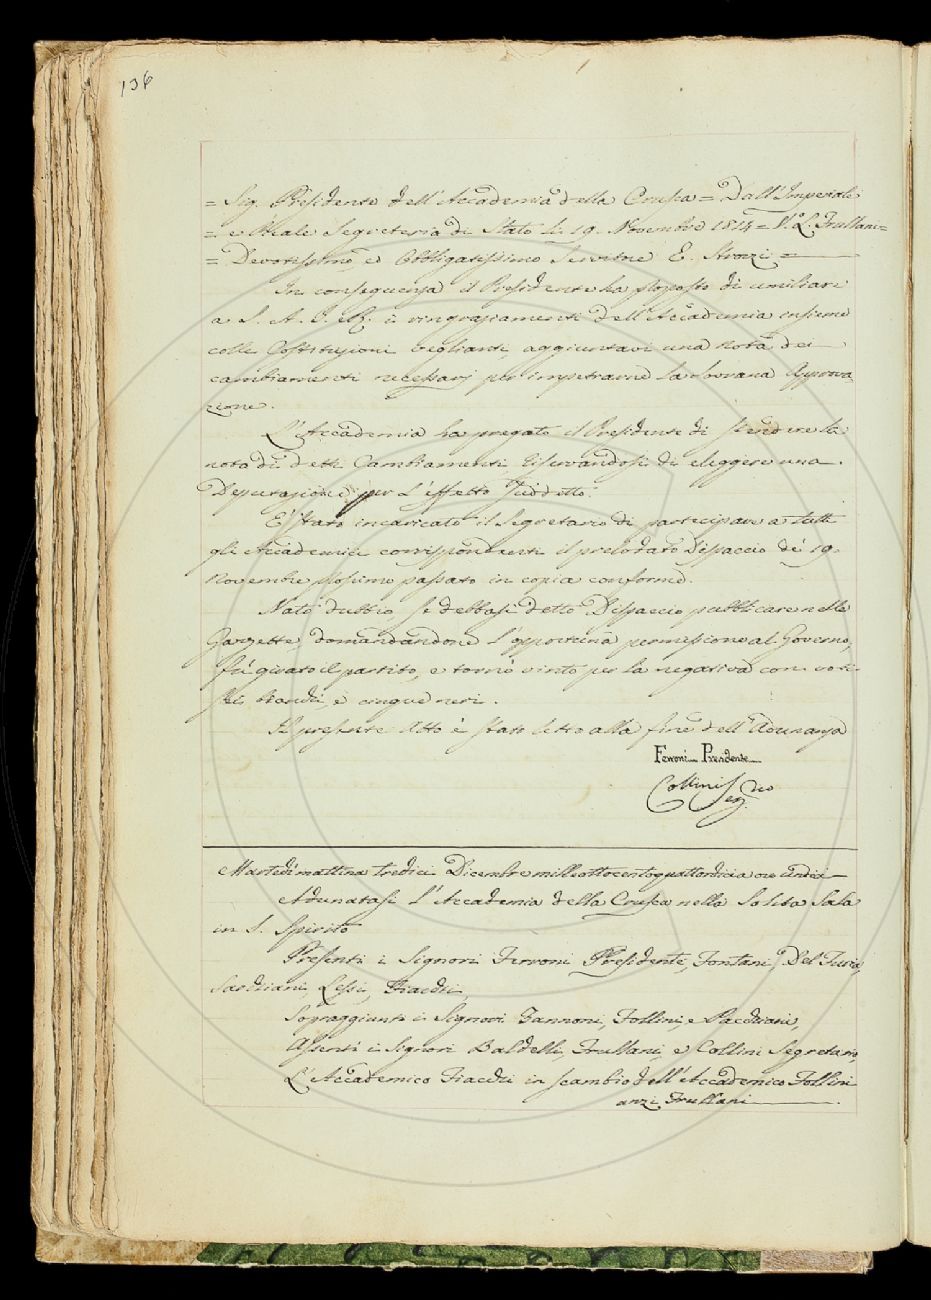 136
= Sig. Presidente dell'Accademia della Crusca = Dall'Imperiale
= e Reale Segreteria di Stato li 19. Novembre 1814 = V.° L. Frullani =
= Devotissimo ed Obbligatissimo Servitore E. Strozzi =
In conseguenza il Presidente ha proposto di umiliare
a S. A. I. e R. i ringraziamenti dell'Accademia insieme
colle Costituzioni veglianti, aggiuntavi una nota dei
cambiamenti necessarj per impetrarne la Sovrana Approva
zione.
L'Accademia ha pregato il Presidente di stendere la
nota di detti Cambiamenti riservandosi di eleggere una
Deputazione per l'effetto suddetto.
E' stato incaricato il Segretario di partecipare a tutti
gli Accademici corrispondenti il prelodato Dispaccio de' 19.
Novembre prossimo passato in copia conforme.
Nato dubbio, se debbasi detto Dispaccio pubblicare nelle
Gazzette, domandandone l'opportuna permissione al Governo,
fu girato il partito, e tornò vinto per la negativa con voti
sei bianchi, e cinque neri.
Il presente Atto è stato letto alla fine dell'Adunanza
Ferroni Presidente
Collini Segrio
Martedì mattina tredici Dicembre milleottocentoquattordici a ore undici
Adunatasi l'Accademia della Crusca nella solita Sala
in S. Spirito
Presenti i Signori Ferroni Presidente, Fontani, Del Furia,
Sarchiani, Lessi, Fiacchi,
Sopraggiunti i Signori Zannoni, Follini, e Pacchiani,
Assenti i Signori Baldelli, Frullani, e Collini Segretario,
L'Accademico Fiacchi in scambio dell'Accademico Follini
anzi Frullani